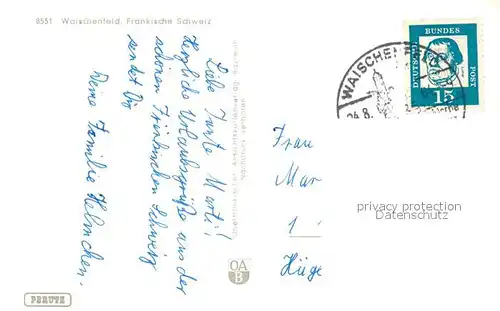 8551 Waischenfeld, Fränkische Schweiz
Liebe Tante Marti!
Herzliche Urlaubsgrüße aus der
schönen Fränkischen Schweiz
sendet Dir
Deine Familie Helmchen.
OA
B
PERUTZ
WAISCHENFE
24.8.
DEUTSCHE
BUNDES
POST
15
Frau
Mar
1
Hüge
privacy protection
Datenschutz